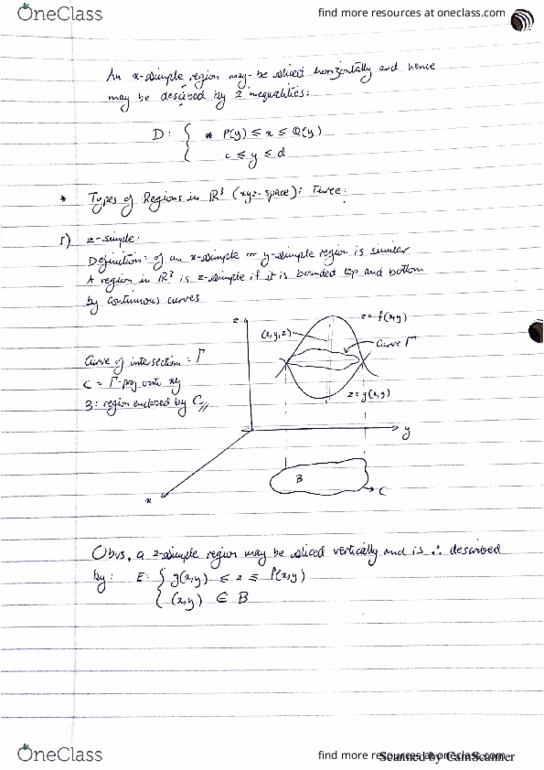 OneClass
find more resources at oneclass.com
An x-simple region may be sliced horizontally and hence
may be described by 2 inequalities:
D: { P(y) ≤ x ≤ Q(y)
c ≤ y ≤ d
* Types of Regions in ℝ³ (xyz-space): Three:
1) z-simple:
Definition: of an x-simple or y-simple region is similar
A region in ℝ³ is z-simple if it is bounded top and bottom
by continuous curves
z
z = f(x,y)
(x,y,z)
Curve Γ
Curve of intersection: Γ
C = Γ proj onto xy
B: region enclosed by C
z = g(x,y)
y
B
C
x
Obvs, a z-simple region may be sliced vertically and is ∴ described
by: E: { g(x,y) ≤ z ≤ f(x,y)
(x,y) ∈ B
OneClass
find more resources at oneclass.com
Scanned by CamScanner